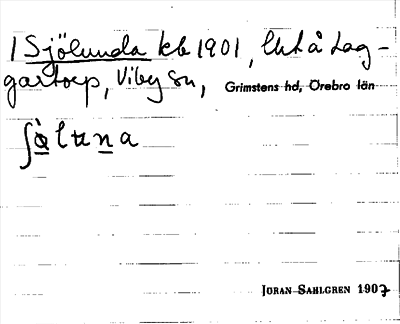 1 Sjölunda kb 1901, lht å Lag-
gartorp, Viby sn, Grimstens hd, Örebro län
ʃö̀luna
JÖRAN SAHLGREN 1907